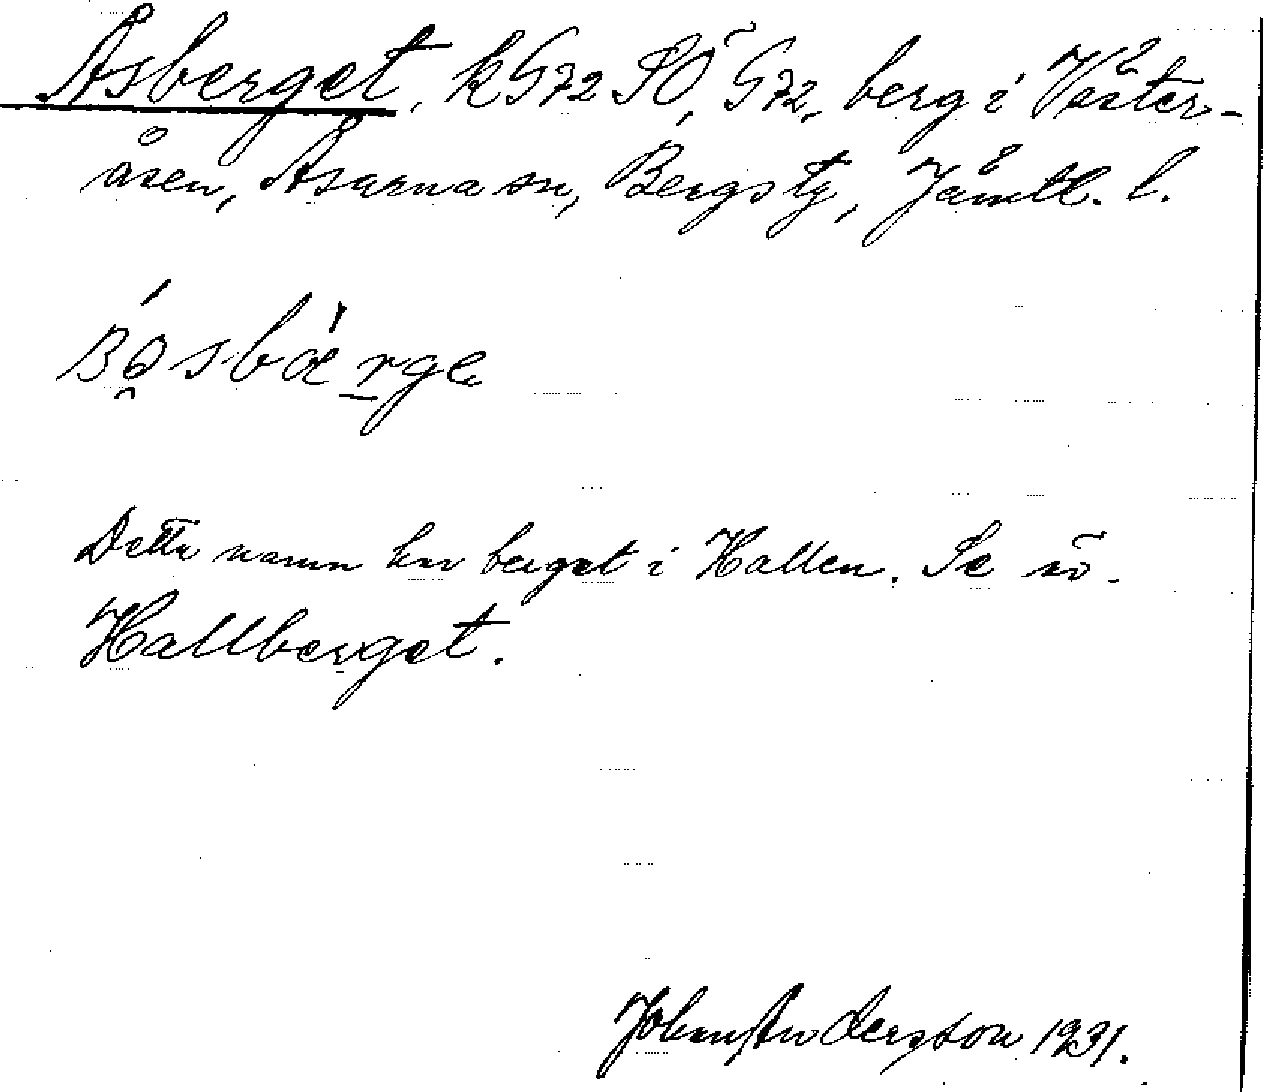 Åsberget, k G72 SÖ, G72, berg i Väster-
åsen, Åsarna sn, Bergs tg, Jämtl. l.
Detta namn har berget i Hallen. Se sö.
Hallberget.
John Andersson 1931.